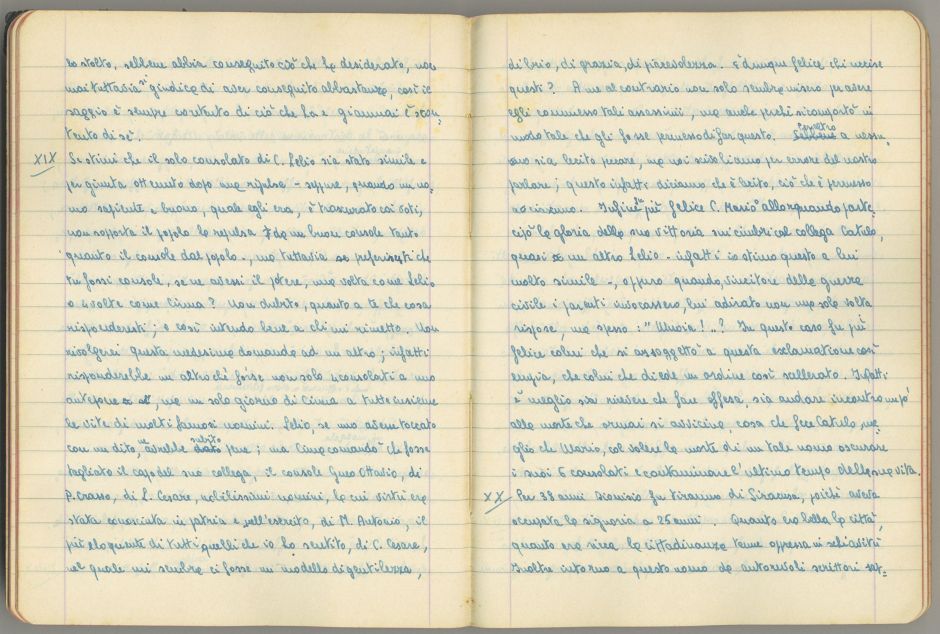 lo stolto, sebbene abbia conseguito ciò che ha desiderato, non
mai tuttavia si giudica di aver conseguito abbastanza, così il
saggio è sempre contento di ciò che ha e giammai è scon=
tento di sé.
XIX
Se stimi che il solo consolato di C. Lelio sia stato simile e
per giunta ottenuto dopo una ripulsa - seppure, quando un uo=
mo sapiente e buono, quale egli era, è trascurato coi voti,
non sopporta il popolo la repulsa da un buon console tanto
quanto il console dal popolo -, ma tuttavia preferiresti che
tu fossi console, se ne avessi il potere, una volta come Lelio
o 4 volte come Cinna? Non dubito, quanto a te che cosa
risponderesti; e così intendo bene a chi mi rimetto. Non
rivolgerei questa medesima domanda ad un altro; infatti
risponderebbe un altro che forse non solo 4 consolati a uno
antepone, ma un solo giorno di Cinna a tutte insieme
le vite di molti famosi uomini. Lelio, se uno avesse toccato
con un dito, ne avrebbe subito dato pene; ma Cinna comandò che fosse
tagliato il capo del suo collega, il console Gneo Ottavio, di
P. Crasso, di L. Cesare, nobilissimi uomini, la cui virtù era
stata conosciuta in patria e nell'esercito, di M. Antonio, il
più eloquente di tutti quelli che io ho sentito, di C. Cesare,
nel quale mi sembra ci fosse un modello di gentilezza,
di brio, di grazia, di piacevolezza. È dunque felice chi uccise
questi? A me al contrario non solo sembra misero per avere
egli commesso tali assassinii, ma anche perché si comportò in
modo tale che gli fosse permesso di far questo. a nessu=
uno sia lecito peccare, ma noi scivoliamo per errore del nostro
parlare; questo infatti diciamo che è lecito, ciò che è permesso
a ciascuno. Infine fu più felice C. Mario allorquando parte=
cipò la gloria della sua vittoria sui cimbri col collega Catulo,
quasi un altro Lelio - infatti io stimo questo a lui
molto simile -, oppure quando, vincitore della guerra
civile i parenti invocassero, lui adirato non una sola volta
rispose, ma spesso: "Muoia!"..? In questo caso fu più
felice colui che si assoggettò a questa esclamazione così
empia, che colui che diede un ordine così scellerato. Infatti
è meglio sia ricevere che fare offesa, sia andare incontro un po'
alla morte che ormai si avvicina, cosa che fece Catulo, me=
glio che Mario, col volere la morte di un tale uomo oscurare
i suoi 6 consolati e contaminare l'ultimo tempo della sua vita.
XX
Per 38 anni Dionisio fu tiranno di Siracusa, poiché aveva
occupata la signoria a 25 anni. Quanto era bella la città,
quanto era ricca la cittadinanza tenne oppressa in schiavitù
Inoltre intorno a questo uomo da autorevoli scrittori